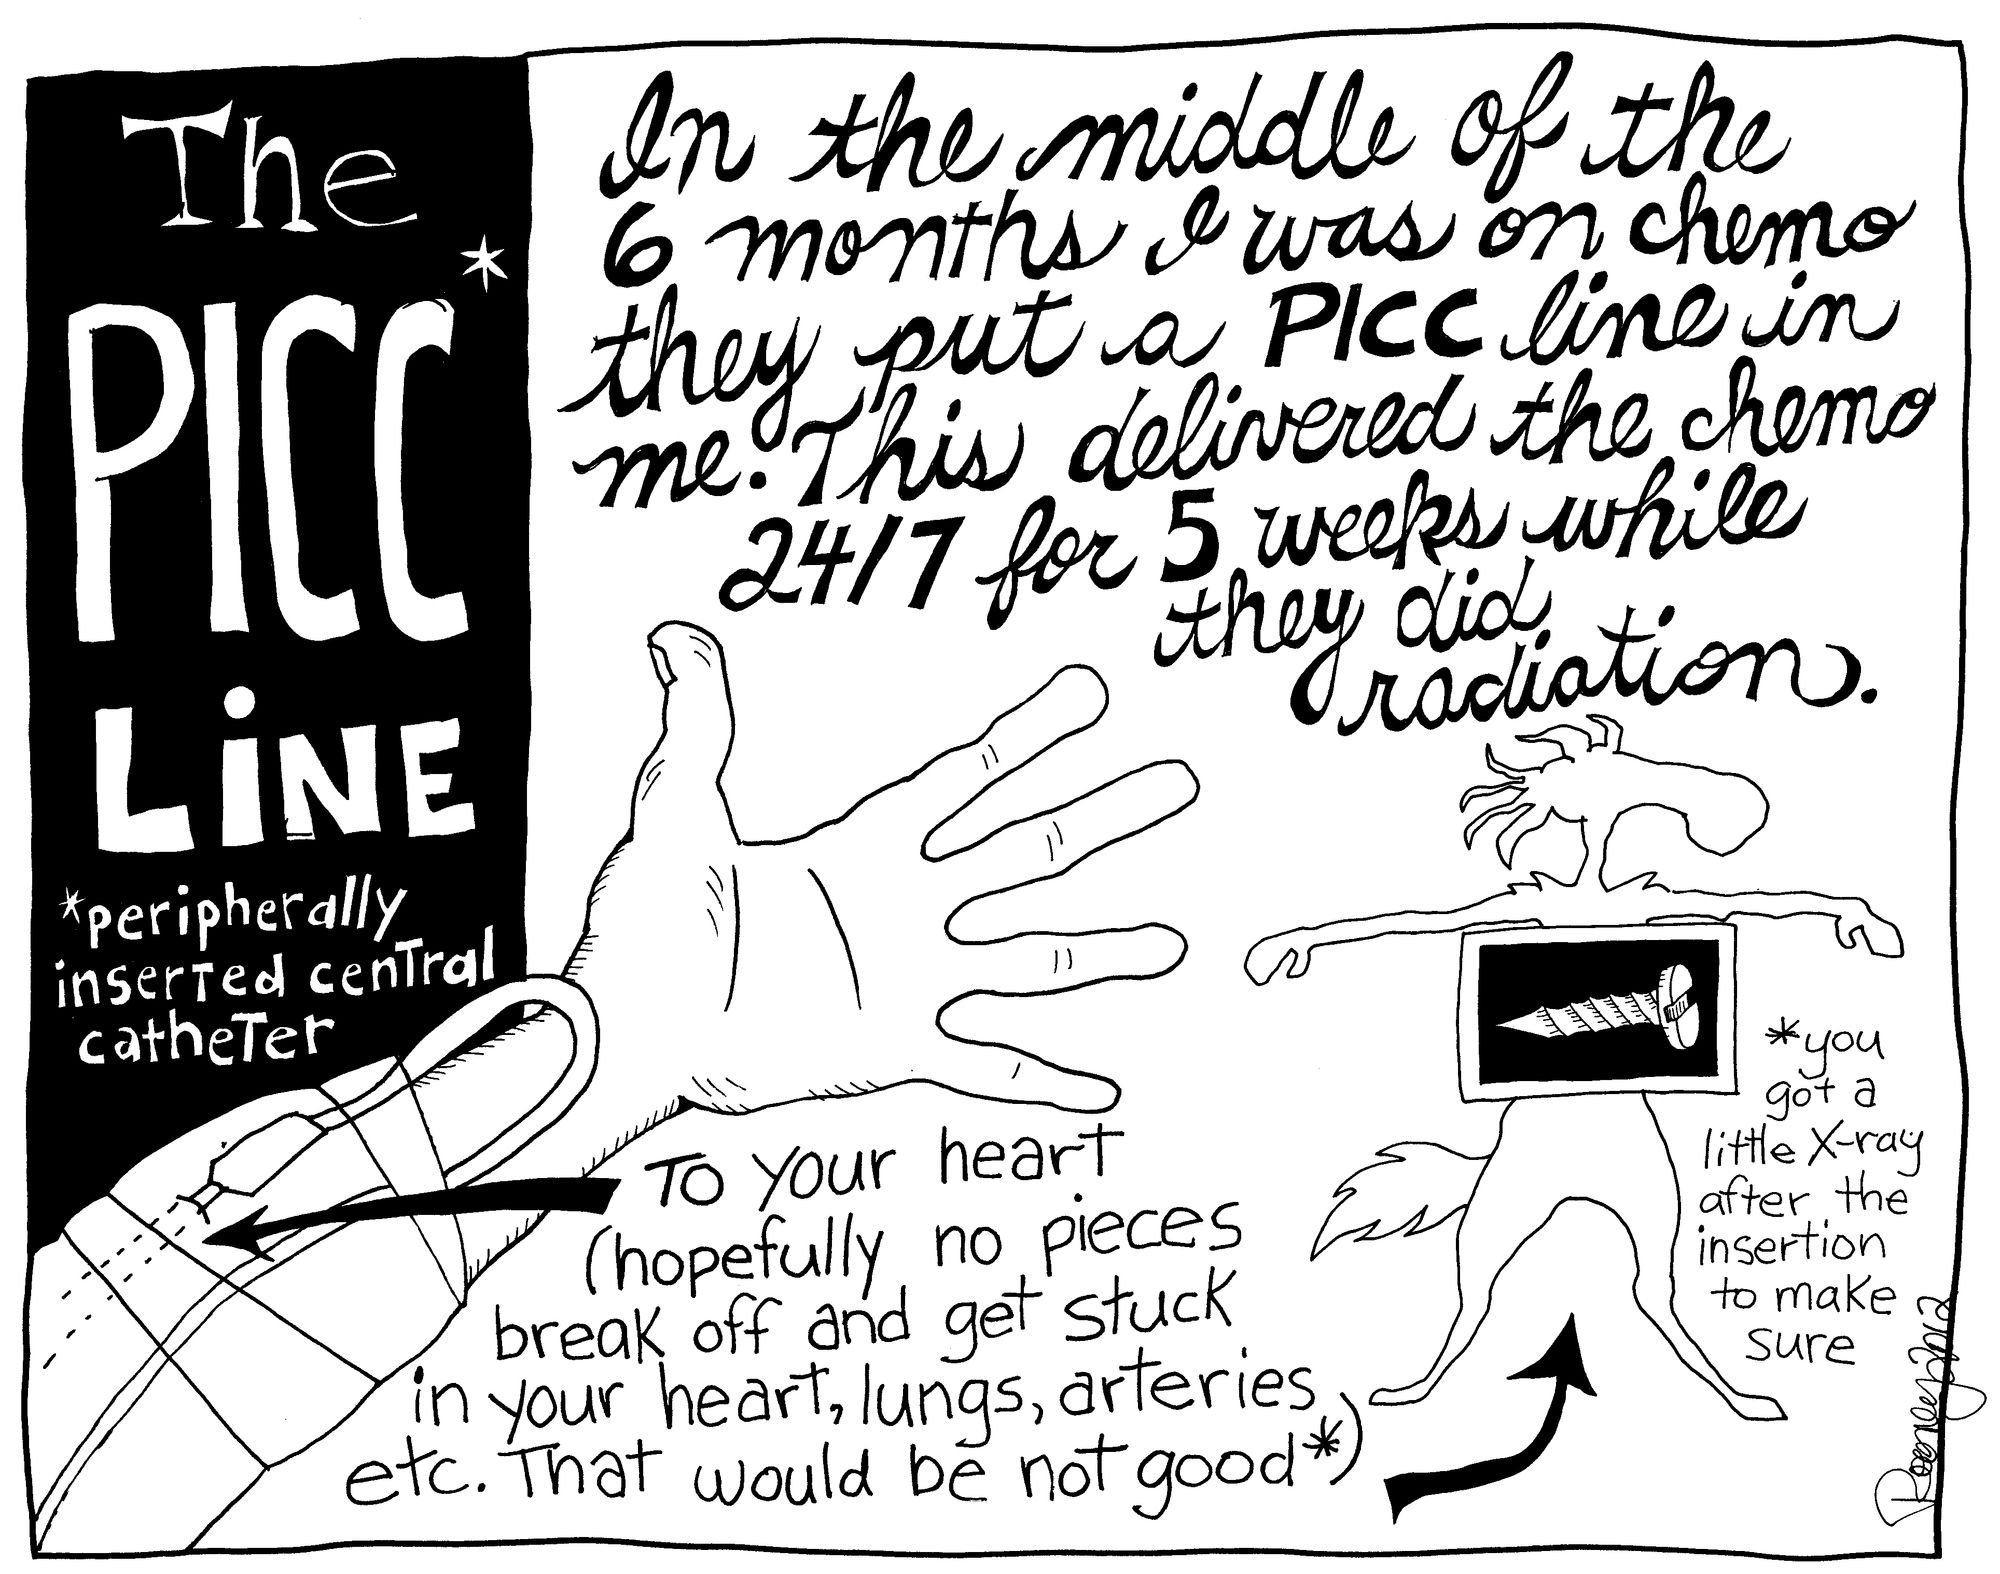 The
PICC*
LiNE
*peripherally
inserted central
catheter
In the middle of the
6 months I was on chemo
they put a PICC line in
me. This delivered the chemo
24/7 for 5 weeks while
they did
radiation.
To your heart
(hopefully no pieces
break off and get stuck
in your heart, lungs, arteries
etc. That would be not good*)
*you
got a
little X-ray
after the
insertion
to make
sure
Rooney 2012